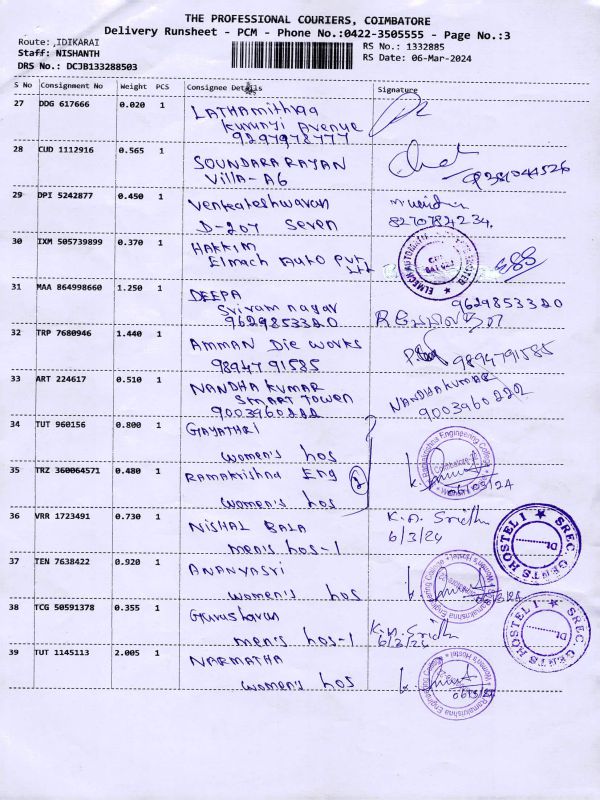 THE PROFESSIONAL COURIERS, COIMBATORE
Delivery Runsheet - PCM - Phone No.:0422-3505555 - Page No.:3
Route: ,IDIKARAI
RS No.: 1332885
Staff: NISHANTH
RS Date: 06-Mar-2024
DRS No.: DCJB133288503
S No Consignment No Weight PCS Consignee Details Signature
27 DDG 617666 0.020 1 LATHAmithraa
Kurunji Avenue
9297978777
28 CUD 1112916 0.565 1 SOUNDARARAYAN
Villa-A6
29 DPI 5242877 0.450 1 Venkateshwaran
D-207 Seven 8270782234.
30 IXM 505739899 0.370 1 HAKKIM
Elmach Auto Pvt
31 MAA 864998660 1.250 1 DEEPA 9629853320
Sriram nagar
9629853320
32 TRP 7680946 1.440 1 AMMAN Die works
9894791585 9894791585
33 ART 224617 0.510 1 NANDHA KUMAR NANDHAKUMAR
SMART TOWER
9003960222 9003960222
34 TUT 960156 0.800 1 GAYATHRI
women's hos
35 TRZ 360064571 0.480 1 Ramakrishna Eng
women's hos 06/03/24
36 VRR 1723491 0.730 1 NISHAL BALA K.A. Sridhr
men's hos-1 6/3/24
SREC GENTS HOSTEL I
Dt.
37 TEN 7638422 0.920 1 ANANYASRI
women's hos
38 TCG 50591378 0.355 1 Gurusharan
men's hos-1 6/3/24
SREC GENTS HOSTEL I
Dt.
39 TUT 1145113 2.005 1 NARMATHA
women's hos 06/03/24